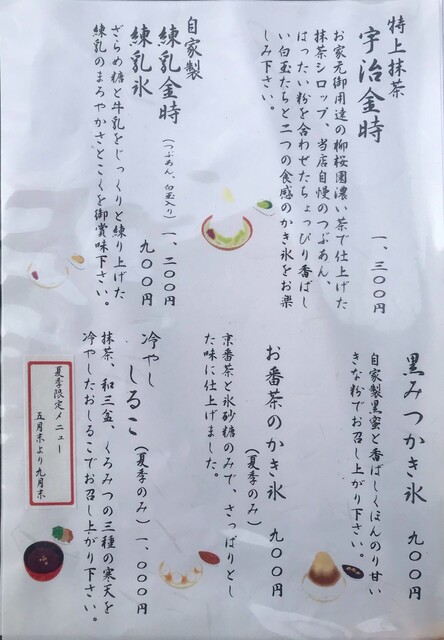 特上抹茶
宇治金時
一、三〇〇円
お家元御用達の柳桜園濃い茶で仕上げた
抹茶シロップ、当店自慢のつぶあん、
はったい粉を合わせたちょっぴり香ばし
い白玉たちと二つの食感のかき氷をお楽
しみ下さい。
自家製
練乳金時
(つぶあん、白玉入り)
一、二〇〇円
練乳氷
九〇〇円
ざらめ糖と牛乳をじっくりと練り上げた
練乳のまろやかさとこくを御賞味下さい。
黒みつかき氷
九〇〇円
自家製黒蜜と香ばしくほんのり甘い
きな粉でお召し上がり下さい。
お番茶のかき氷
九〇〇円
(夏季のみ)
京番茶と氷砂糖のみで、さっぱりとし
た味に仕上げました。
冷やし
しるこ
(夏季のみ)
一、〇〇〇円
抹茶、和三盆、くろみつの三種の寒天を
冷やしたおしるこでお召し上がり下さい。
夏季限定メニュー
五月末より九月末